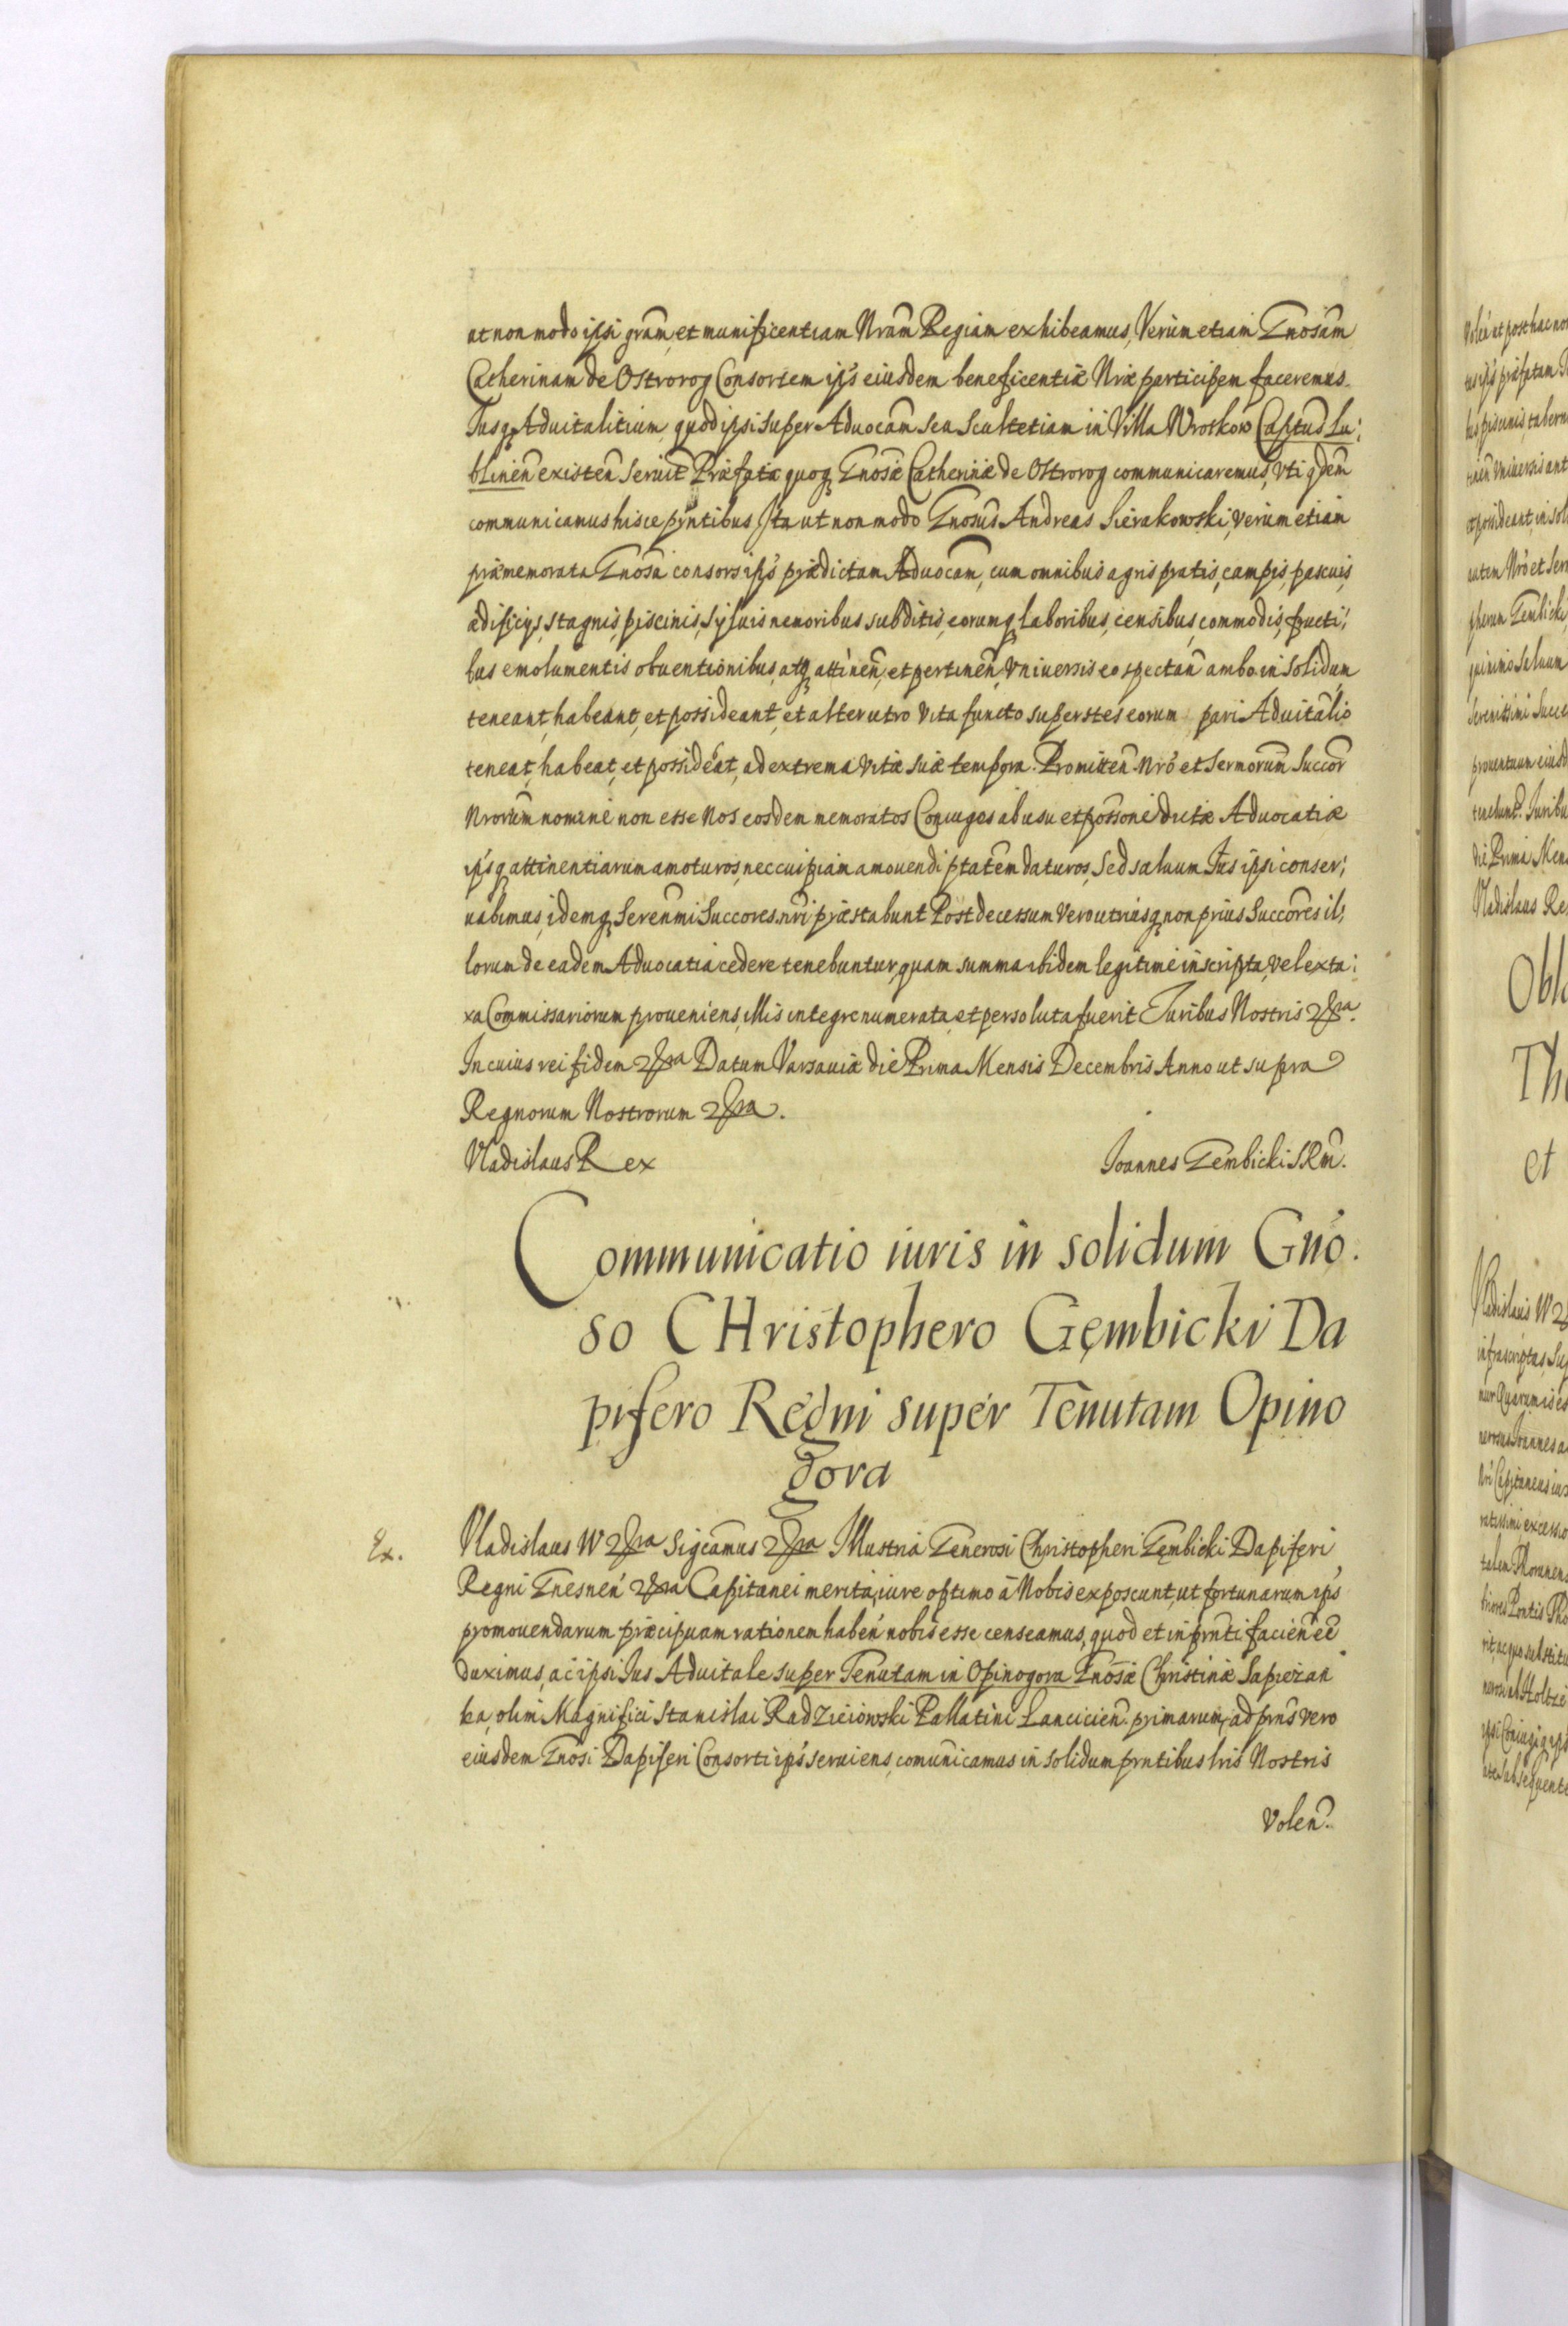 ut non modo ipsi gram̃, et munificentiam Nram̃ Regiam exhibeamus, Verum etiam Gnosam̃
Catherinam de Ostrorog Consortem ips̃ eiusdem beneficentiæ Nræ participem faceremus.
Iusq̢ Aduitalitium quod ipsi super Aduocam̃ seu Scultetiam in Villa Wrotkow Captus̃ Lu:
blinen̄ existen̄ seruit Præfatæ quoq̢ Gnosæ Catherinæ de Ostrorog communicaremus, vti qdem̃
communicamus hisce pñtibus Ita ut non modo Gnosus̃ Andreas Sierakowski, verum etiam
præmemorata Gnosa consors ips̃ prædictam Aduocam̃, cum omnibus agris pratis, campis, pascuis,
ædificijs, stagnis, piscinis, syluis nemoribus subditis, eorumq̢ laboribus, censibus, commodis, fructi:
bus emolumentis obuentionibus, atq̢ attinen̄, et pertinen̄, Vniuersis eo spectan̄ ambo in solidum
teneant, habeant, et possideant, et alterutro Vita functo superstes eorum pari Aduitalio
teneat, habeat, et possideat, ad extrema Vitæ suæ tempora. Promitten̄ Nrõ et Sermorum̃ Succor̃
Nrorum̃ nomine non esse Nos eosdem memoratos Coniuges ab usu et possone dictæ Aduocatiæ
ips̃q̢ attinentiarum amoturos, nec cuipiam amouendi ptatem̃ daturos, Sed saluum Ius ipsi conser:
uabimus, idemq̢ Serenm̃i Succores nri præstabunt Post decessum Vero utriusq̢ non prius Succores̃ il:
lorum de eadem Aduocatia cedere tenebuntur, quam summa ibidem legitime inscripta, vel exta:
xa Commissariorum proueniens, illis integre numerata, et persoluta fuerit Iuribus Nostris &ra.
In cuius rei fidem &ra Datum Varsauiæ die Prima Mensis Decembris Anno ut supra
Regnorum Nostrorum &ra.
Vladislaus Rex Ioannes Gembicki SRm̃.
Communicatio iuris in solidum Gño.
so CHristophero Gęmbicki Da
pifero Regni super Tenutam Opino
gora
Ex. Vladislaus IV &ra Sigcamus̃ &ra Illustria Generosi Christopheri Gęmbicki Dapiferi
Regni Gnesnen̄ &ra Capitanei merita, iure optimo â Nobis exposcunt, ut fortunarum ips̃
promouendarum præcipuam rationem haben̄ nobis esse censeamus, quod et in prnti facien̄ eẽ
duximus, ac ipsi Ius Aduitale super Tenutam in Opinogora Gnosæ Christinæ Sapiezan
ka, olim Magnifici Stanislai Radzieiowski Pallatini Lancicien̄. primarum, ad prns̃ vero
eiusdem Gnosi Dapiferi Consorti ips̃ seruiens, comunicamus̃ in solidum prntibus lris̃ Nostris
Volen̄.
Obl
Th
et